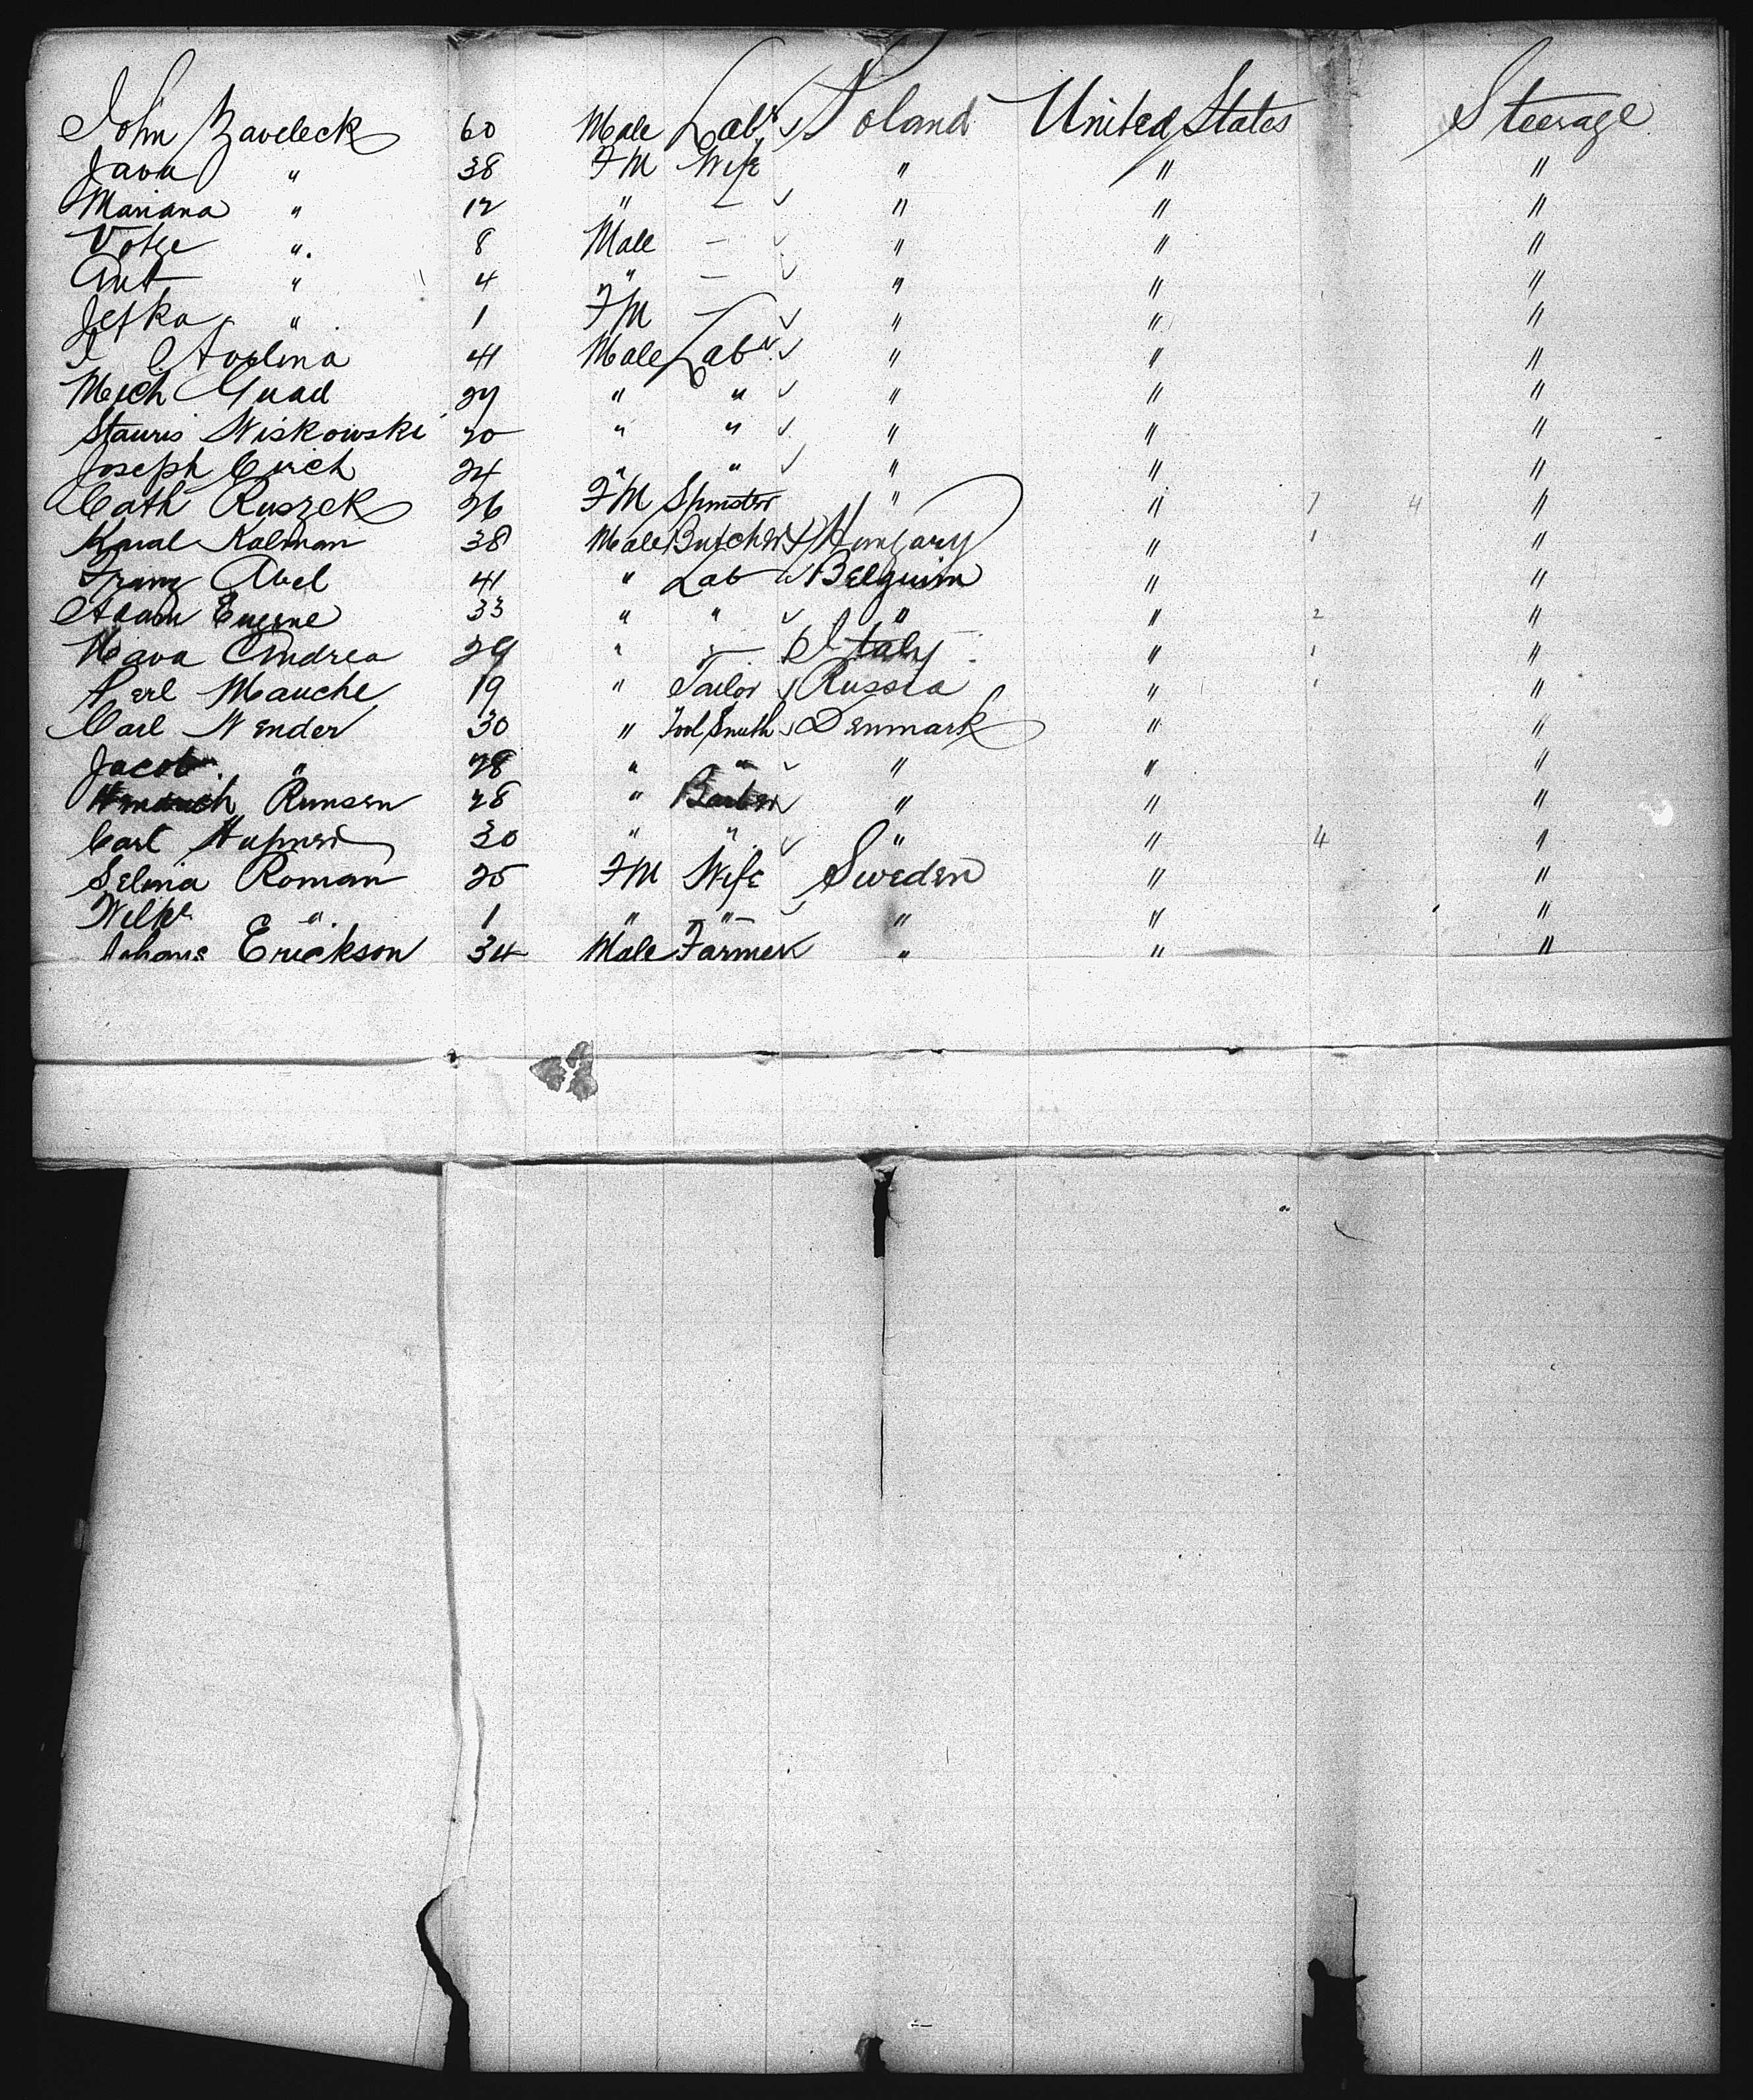 John Zaveleck 60 Male Labr ✓ Poland United States Steerage
Java " 38 FM Wife " " "
Mariana " 12 " — ✓ " " "
Votze " 8 Male — ✓ " " "
Ant " 4 " — ✓ " " "
Jefka " 1 FM — ✓ " " "
I Avolina 41 Male Labr ✓ " " "
Mich Guad 29 " " ✓ " " "
Stauris Wiskowski 20 " " ✓ " " "
Joseph Cuich 24 " " ✓ " " "
Cath Ruszek 26 FM Spinster " " 7 4 "
Kalman 38 Male Butcher ✓ Hungary " 1 "
Franz Abel 41 " Lab ✓ Belguim " "
Adam Eugene 33 " " ✓ " " 2 "
Nava Andrea 29 " — ✓ Italy " 1 "
Perl Mauche 19 " Tailor ✓ Russia " 1 "
Carl Wender 30 " Tool Smith ✓ Denmark " "
Jacob " 28 " " ✓ " " "
Runsen 28 " Barber ✓ " " "
Carl 30 " " ✓ " " 4 "
Selina Roman 25 FM Wife Sweden " "
Wilhe " 1 " "— ✓ " " "
Johans Erickson 34 Male Farmer ✓ " " "